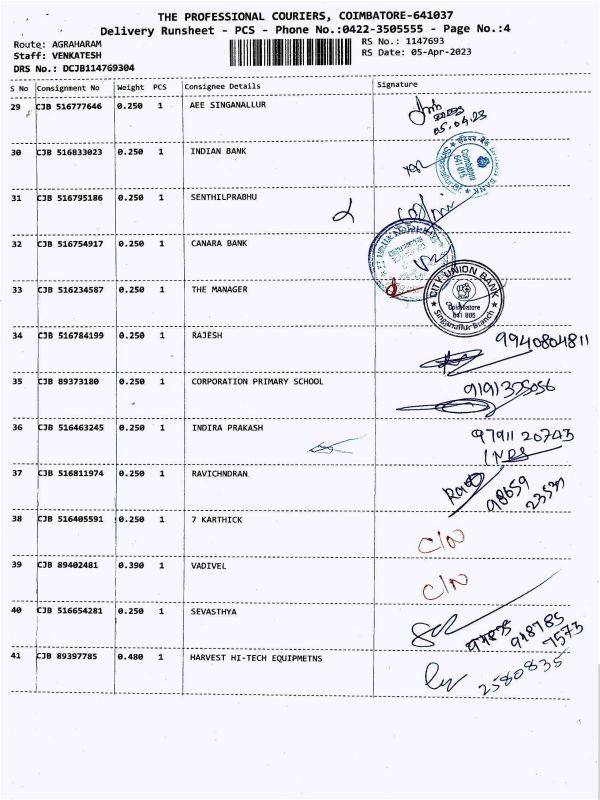 THE PROFESSIONAL COURIERS, COIMBATORE-641037
Delivery Runsheet - PCS - Phone No.:0422-3505555 - Page No.:4
Route: AGRAHARAM
RS No.: 1147693
Staff: VENKATESH
RS Date: 05-Apr-2023
DRS No.: DCJB114769304
S No Consignment No Weight PCS Consignee Details Signature
29 CJB 516777646 0.250 1 AEE SINGANALLUR
05.04.23
30 CJB 516833023 0.250 1 INDIAN BANK
Coimbatore
641 015
31 CJB 516795186 0.250 1 SENTHILPRABHU
32 CJB 516754917 0.250 1 CANARA BANK
33 CJB 516234587 0.250 1 THE MANAGER
CITY UNION BANK
Coimbatore
641 005
Singanallur Branch
34 CJB 516784199 0.250 1 RAJESH 9940804811
35 CJB 89373180 0.250 1 CORPORATION PRIMARY SCHOOL
36 CJB 516463245 0.250 1 INDIRA PRAKASH 97911 20743
37 CJB 516811974 0.250 1 RAVICHNDRAN
98659
38 CJB 516405591 0.250 1 7 KARTHICK C/N
39 CJB 89402481 0.390 1 VADIVEL C/N
40 CJB 516654281 0.250 1 SEVASTHYA
918785
7573
41 CJB 89397785 0.480 1 HARVEST HI-TECH EQUIPMETNS 2580835